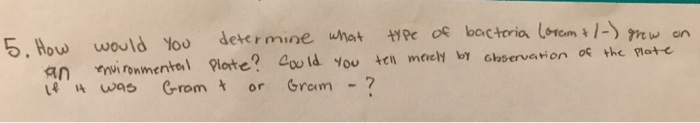 5. How would you determine what type of bacteria (Gram +/-) grew on
an environmental plate? Could you tell merely by observation of the plate
if it was Gram + or Gram - ?